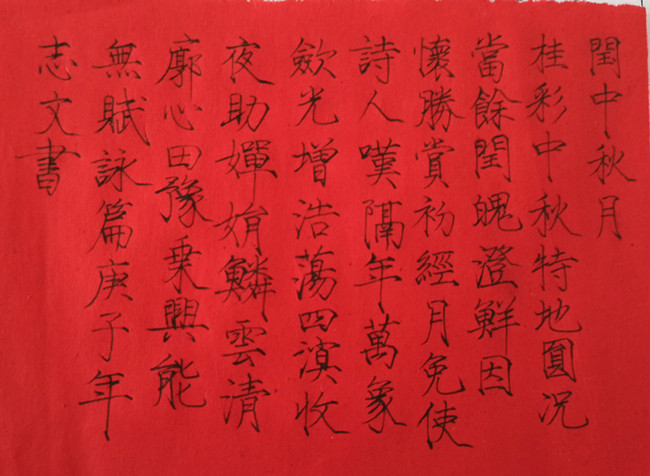 閏中秋月
桂彩中秋特地圓況
當餘閏魄澄鮮因
懷勝賞初經月免使
詩人嘆隔年萬象
歛光增浩蕩四溟收
夜助嬋娟鱗雲清
廓心田豫乗興能
無賦詠篇庚子年
志文書